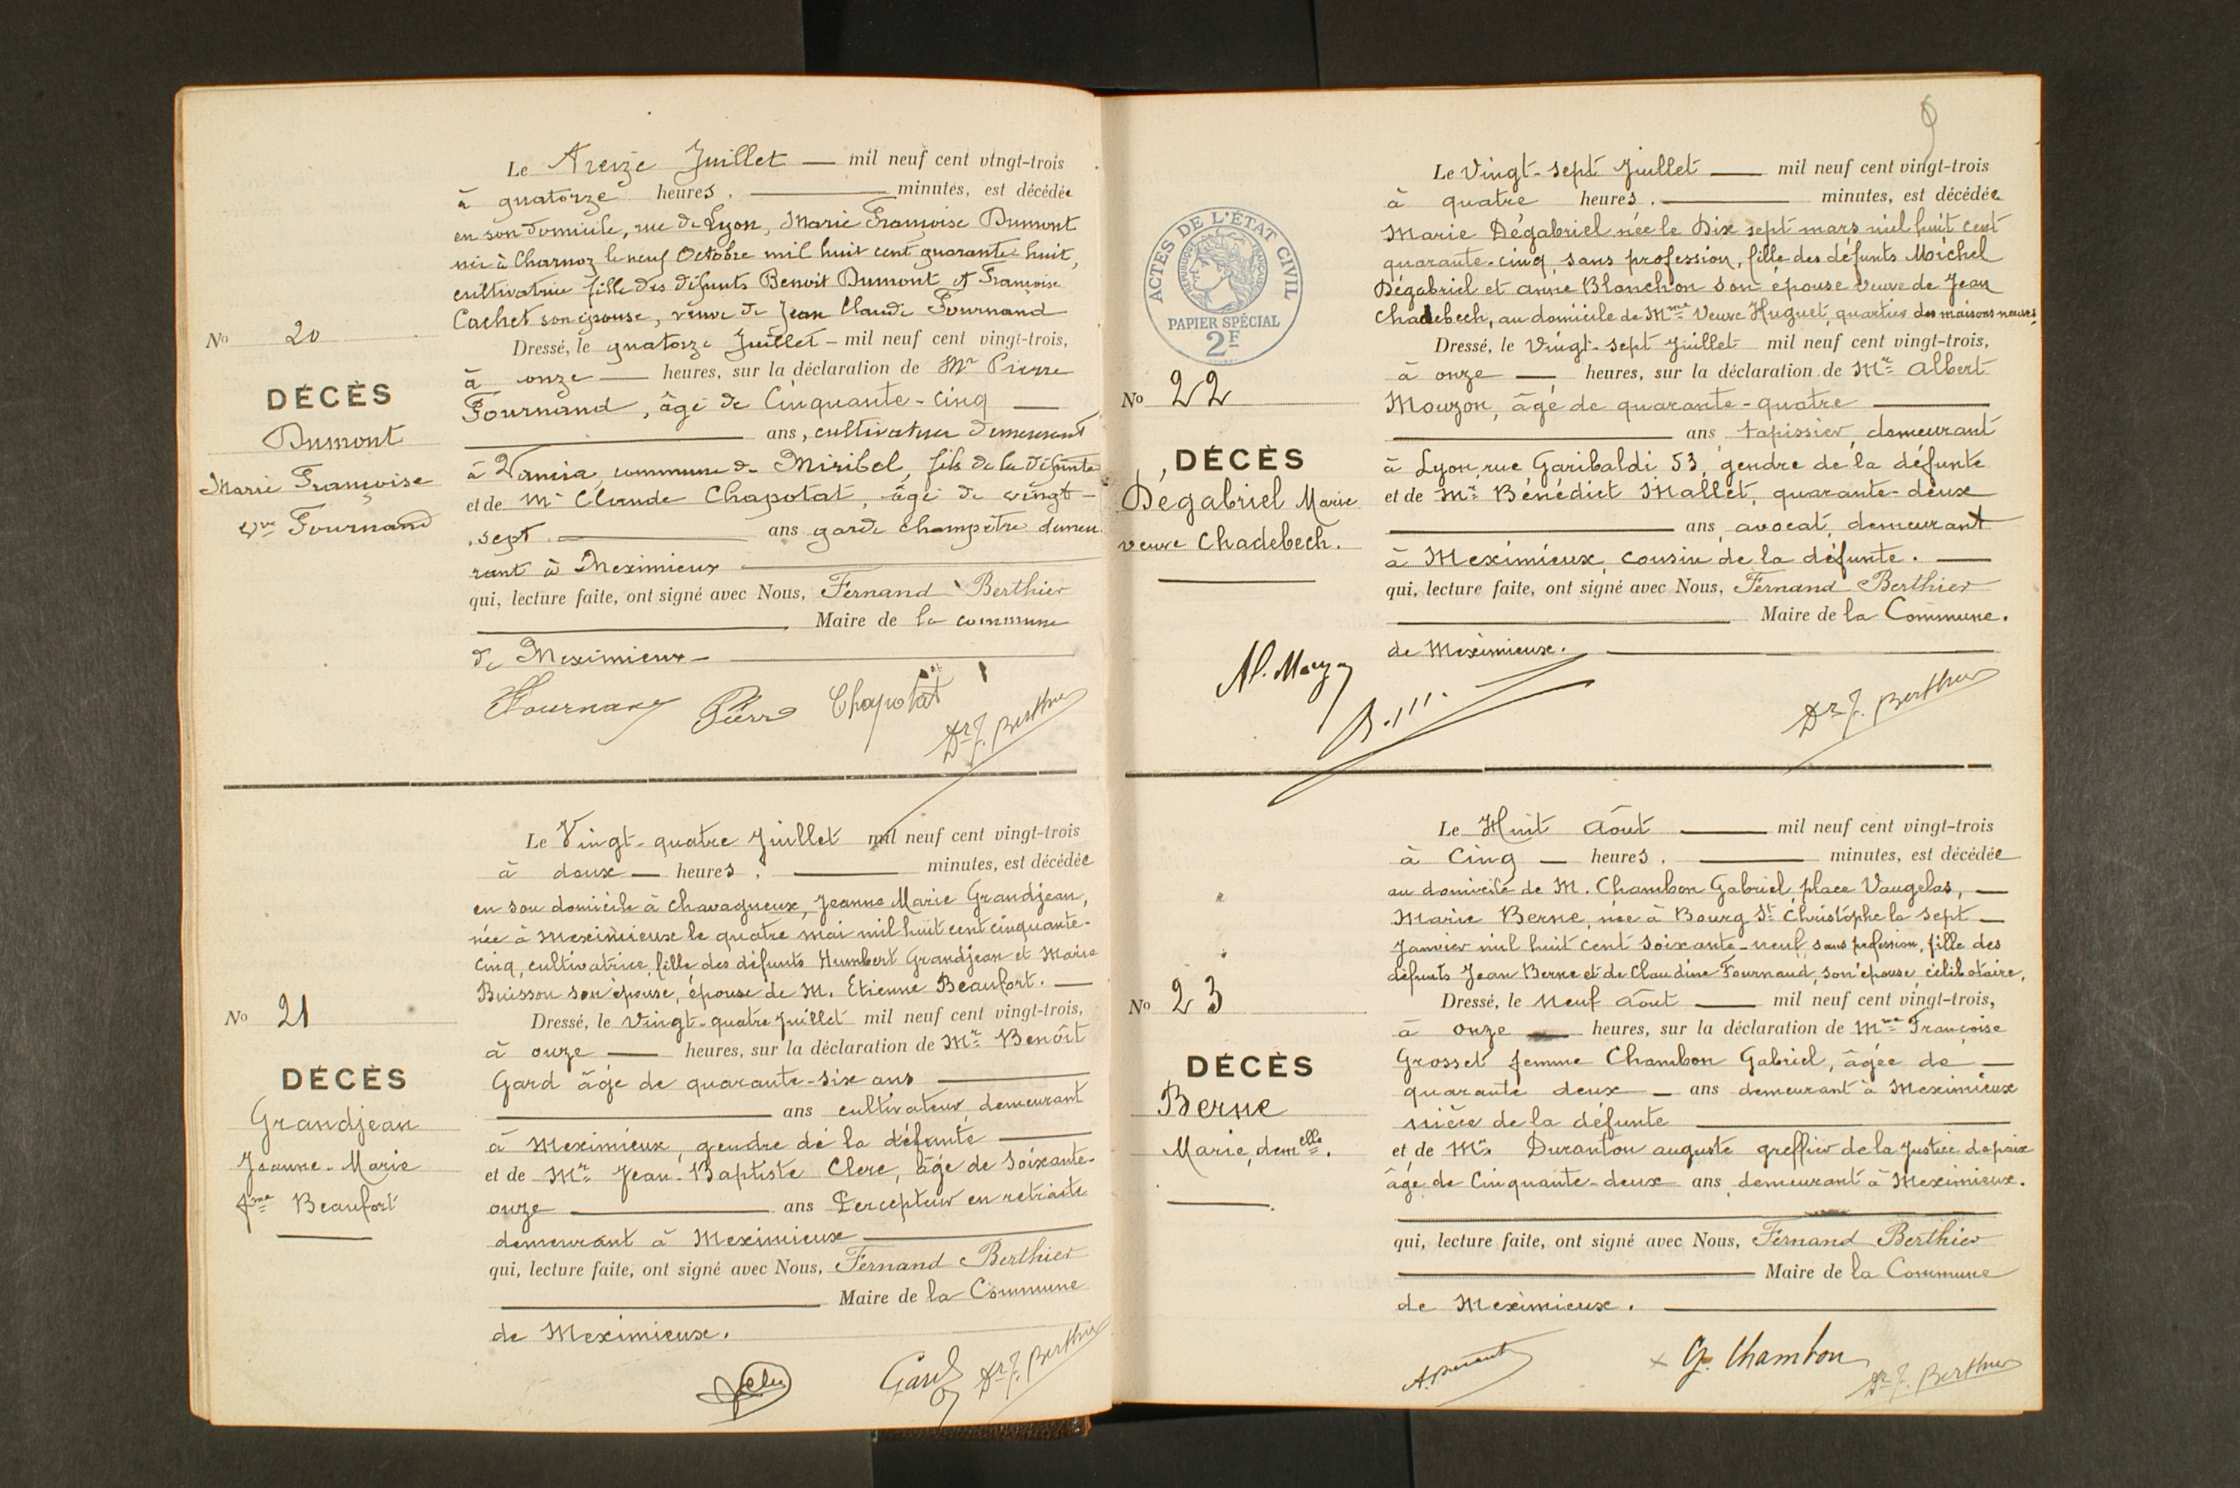 Le Treize Juillet — mil neuf cent vingt-trois
à quatorze heures. — minutes, est décédée
en son domicile, rue de Lyon, Marie Françoise Dumont
née à Charnoz le neuf Octobre mil huit cent quarante huit,
cultivatrice fille des défunts Benoit Dumont et Françoise
Cachet son épouse, veuve de Jean Claude Fournand
No 20
Dressé, le quatorze Juillet - mil neuf cent vingt-trois,
à onze — heures, sur la déclaration de Mr Pierre
DÉCÈS
Fournand, âgé de Cinquante-cinq —
Dumont
— ans, cultivateur demeurant
Marie Françoise
à Vancia, commune de Miribel, fils de la défunte
et de Mr Claude Chapotat, âgé de vingt-
Vve Fournand
sept — ans garde champêtre demeu
rant à Meximieux —
qui, lecture faite, ont signé avec Nous, Fernand Berthier
— Maire de la commune
de Meximieux —
Fournand Pierre Chapotat Dr F. Berthier
Le Vingt-quatre Juillet mil neuf cent vingt-trois
à deux — heures. — minutes, est décédée
en son domicile à Chavagneux, Jeanne Marie Grandjean,
née à Meximieux le quatre mai mil huit cent cinquante-
cinq, cultivatrice, fille des défunts Humbert Grandjean et Marie
Buisson son épouse, épouse de M. Etienne Beaufort. —
No 21
Dressé, le Vingt-quatre Juillet mil neuf cent vingt-trois,
à onze — heures, sur la déclaration de Mr Benoît
DÉCÈS
Gard âgé de quarante-six ans —
Grandjean
— ans cultivateur, demeurant
à Meximieux, gendre de la défunte —
Jeanne-Marie
et de Mr Jean-Baptiste Clerc, âgé de Soixante-
fme Beaufort
onze — ans Percepteur en retraite
demeurant à Meximieux —
qui, lecture faite, ont signé avec Nous, Fernand Berthier
— Maire de la Commune
de Meximieux.
Gard Dr F. Berthier
9
Le Vingt-sept Juillet — mil neuf cent vingt-trois
à quatre heures. — minutes, est décédée
Marie Dégabriel née le Dix sept mars mil huit cent
quarante-cinq, sans profession, fille des défunts Michel
Dégabriel et Anne Blanchon son épouse veuve de Jean
Chadebech, au domicile de Mme Veuve Huguet, quartier des maisons neuves.
ACTES DE L'ÉTAT CIVIL
RÉPUBLIQUE FRANÇAISE
PAPIER SPÉCIAL
2F
Dressé, le Vingt-sept Juillet mil neuf cent vingt-trois,
à onze — heures, sur la déclaration de Mr Albert
No 22
Mouzon, âgé de quarante-quatre —
— ans tapissier, demeurant
DÉCÈS
à Lyon, rue Garibaldi 53, gendre de la défunte
Dégabriel Marie
et de Mr Bénédict Mallet, quarante-deux
— ans, avocat, demeurant
veuve Chadebech.
à Meximieux, cousin de la défunte. —
qui, lecture faite, ont signé avec Nous, Fernand Berthier
— Maire de la Commune.
de Meximieux. —
Al. Mouzon
Dr F. Berthier
Le Huit Août — mil neuf cent vingt-trois
à Cinq — heures. — minutes, est décédée
au domicile de M. Chambon Gabriel, place Vaugelas, —
Marie Berne, née à Bourg St Christophe le sept —
Janvier mil huit cent soixante-neuf, sans profession, fille des
défunts Jean Berne et de Claudine Fournaud, son épouse célibataire.
No 23
Dressé, le Neuf Août — mil neuf cent vingt-trois,
à onze — heures, sur la déclaration de Mme Françoise
DÉCÈS
Grosset femme Chambon Gabriel, âgée de —
quarante deux — ans demeurant à Meximieux
Berne
nièce de la défunte —
Marie, demelle.
et de Mr Duranton auguste greffier de la Justice de paix
âgé de Cinquante-deux ans demeurant à Meximieux.
qui, lecture faite, ont signé avec Nous, Fernand Berthier
— Maire de la Commune
de Meximieux. —
x G. Chambon Dr F. Berthier